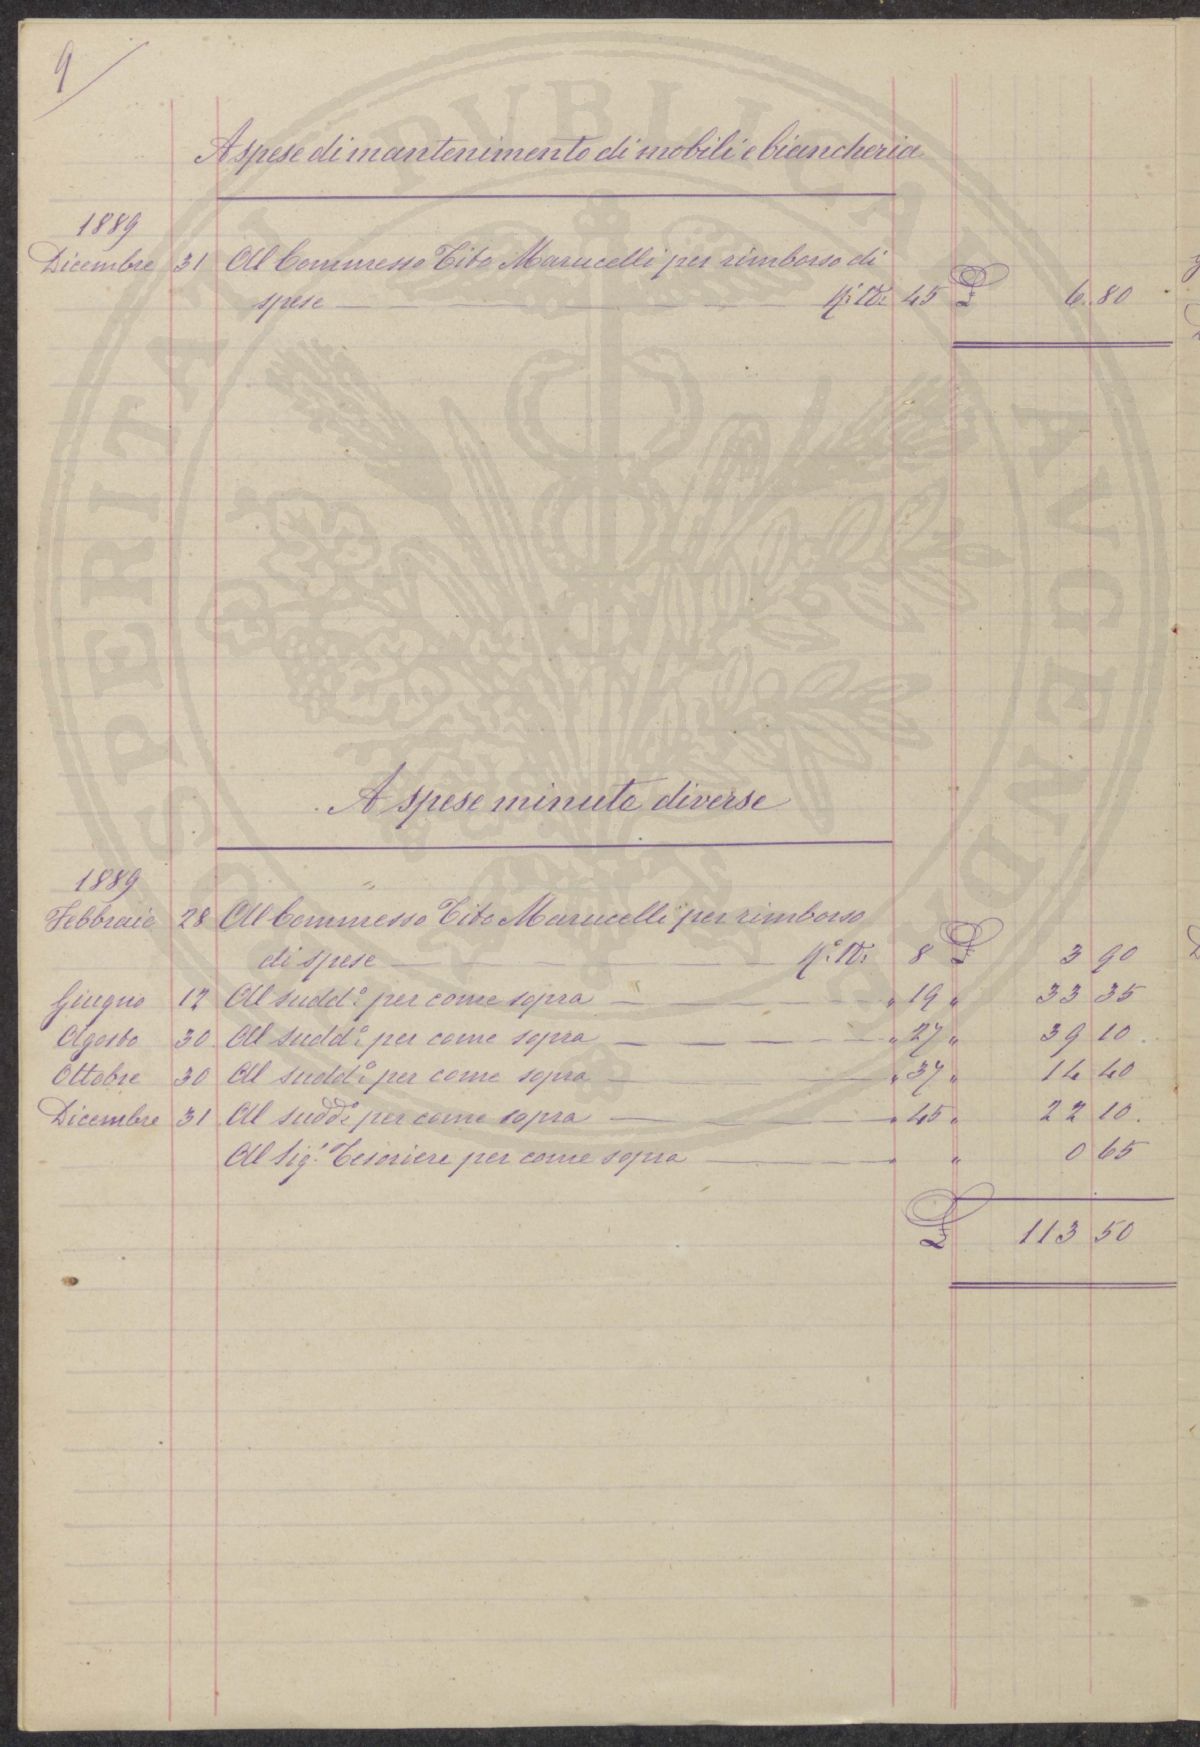 9
A spese di mantenimento di mobili e biancheria
1889
Dicembre 31 Al Commesso Tito Marucelli per rimborso di
spese 45 £ 6.80
A spese minute diverse
1889
Febbraio 28 Al Commesso Tito Marucelli per rimborso
di spese 8 £ 3 90
Giugno 12 Al sudd.º per come sopra " 19 " 33 35
Agosto 30 Al sudd.º per come sopra " 27 " 39 10
Ottobre 30 Al sudd.º per come sopra " 37 " 14 40
Dicembre 31 Al sudd.º per come sopra " 45 " 22 10.
Al Sig.r Tesoriere per come sopra " " 0 65
£ 113 50
PROSPERITATI PVBLICAE AVGENDAE